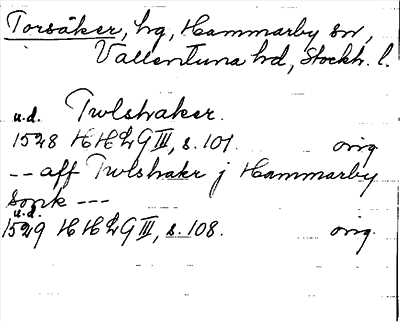 Torsåker, hg, Hammarby sn,
Vallentuna hd, Stockh. l.
u.d. Twlshaker.
1528 HH2G III, s. 101. orig
-- aff Twlshakr j Hammarby
Sock ---
u.d.
1529 HH2G III, s. 108. orig.